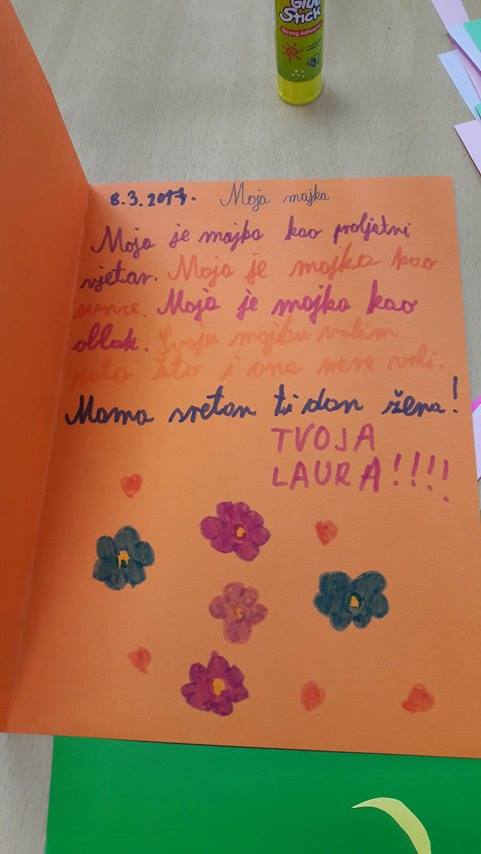 Glue
Stick
Strong Adhesive
8.3.2017. Moja majka
Moja je majka kao proljetni
vjetar. Moja je majka kao
sunce. Moja je majka kao
oblak. Svoju majku volim
zato što i ona mene voli.
Mama sretan ti dan žena!
TVOJA
LAURA!!!!